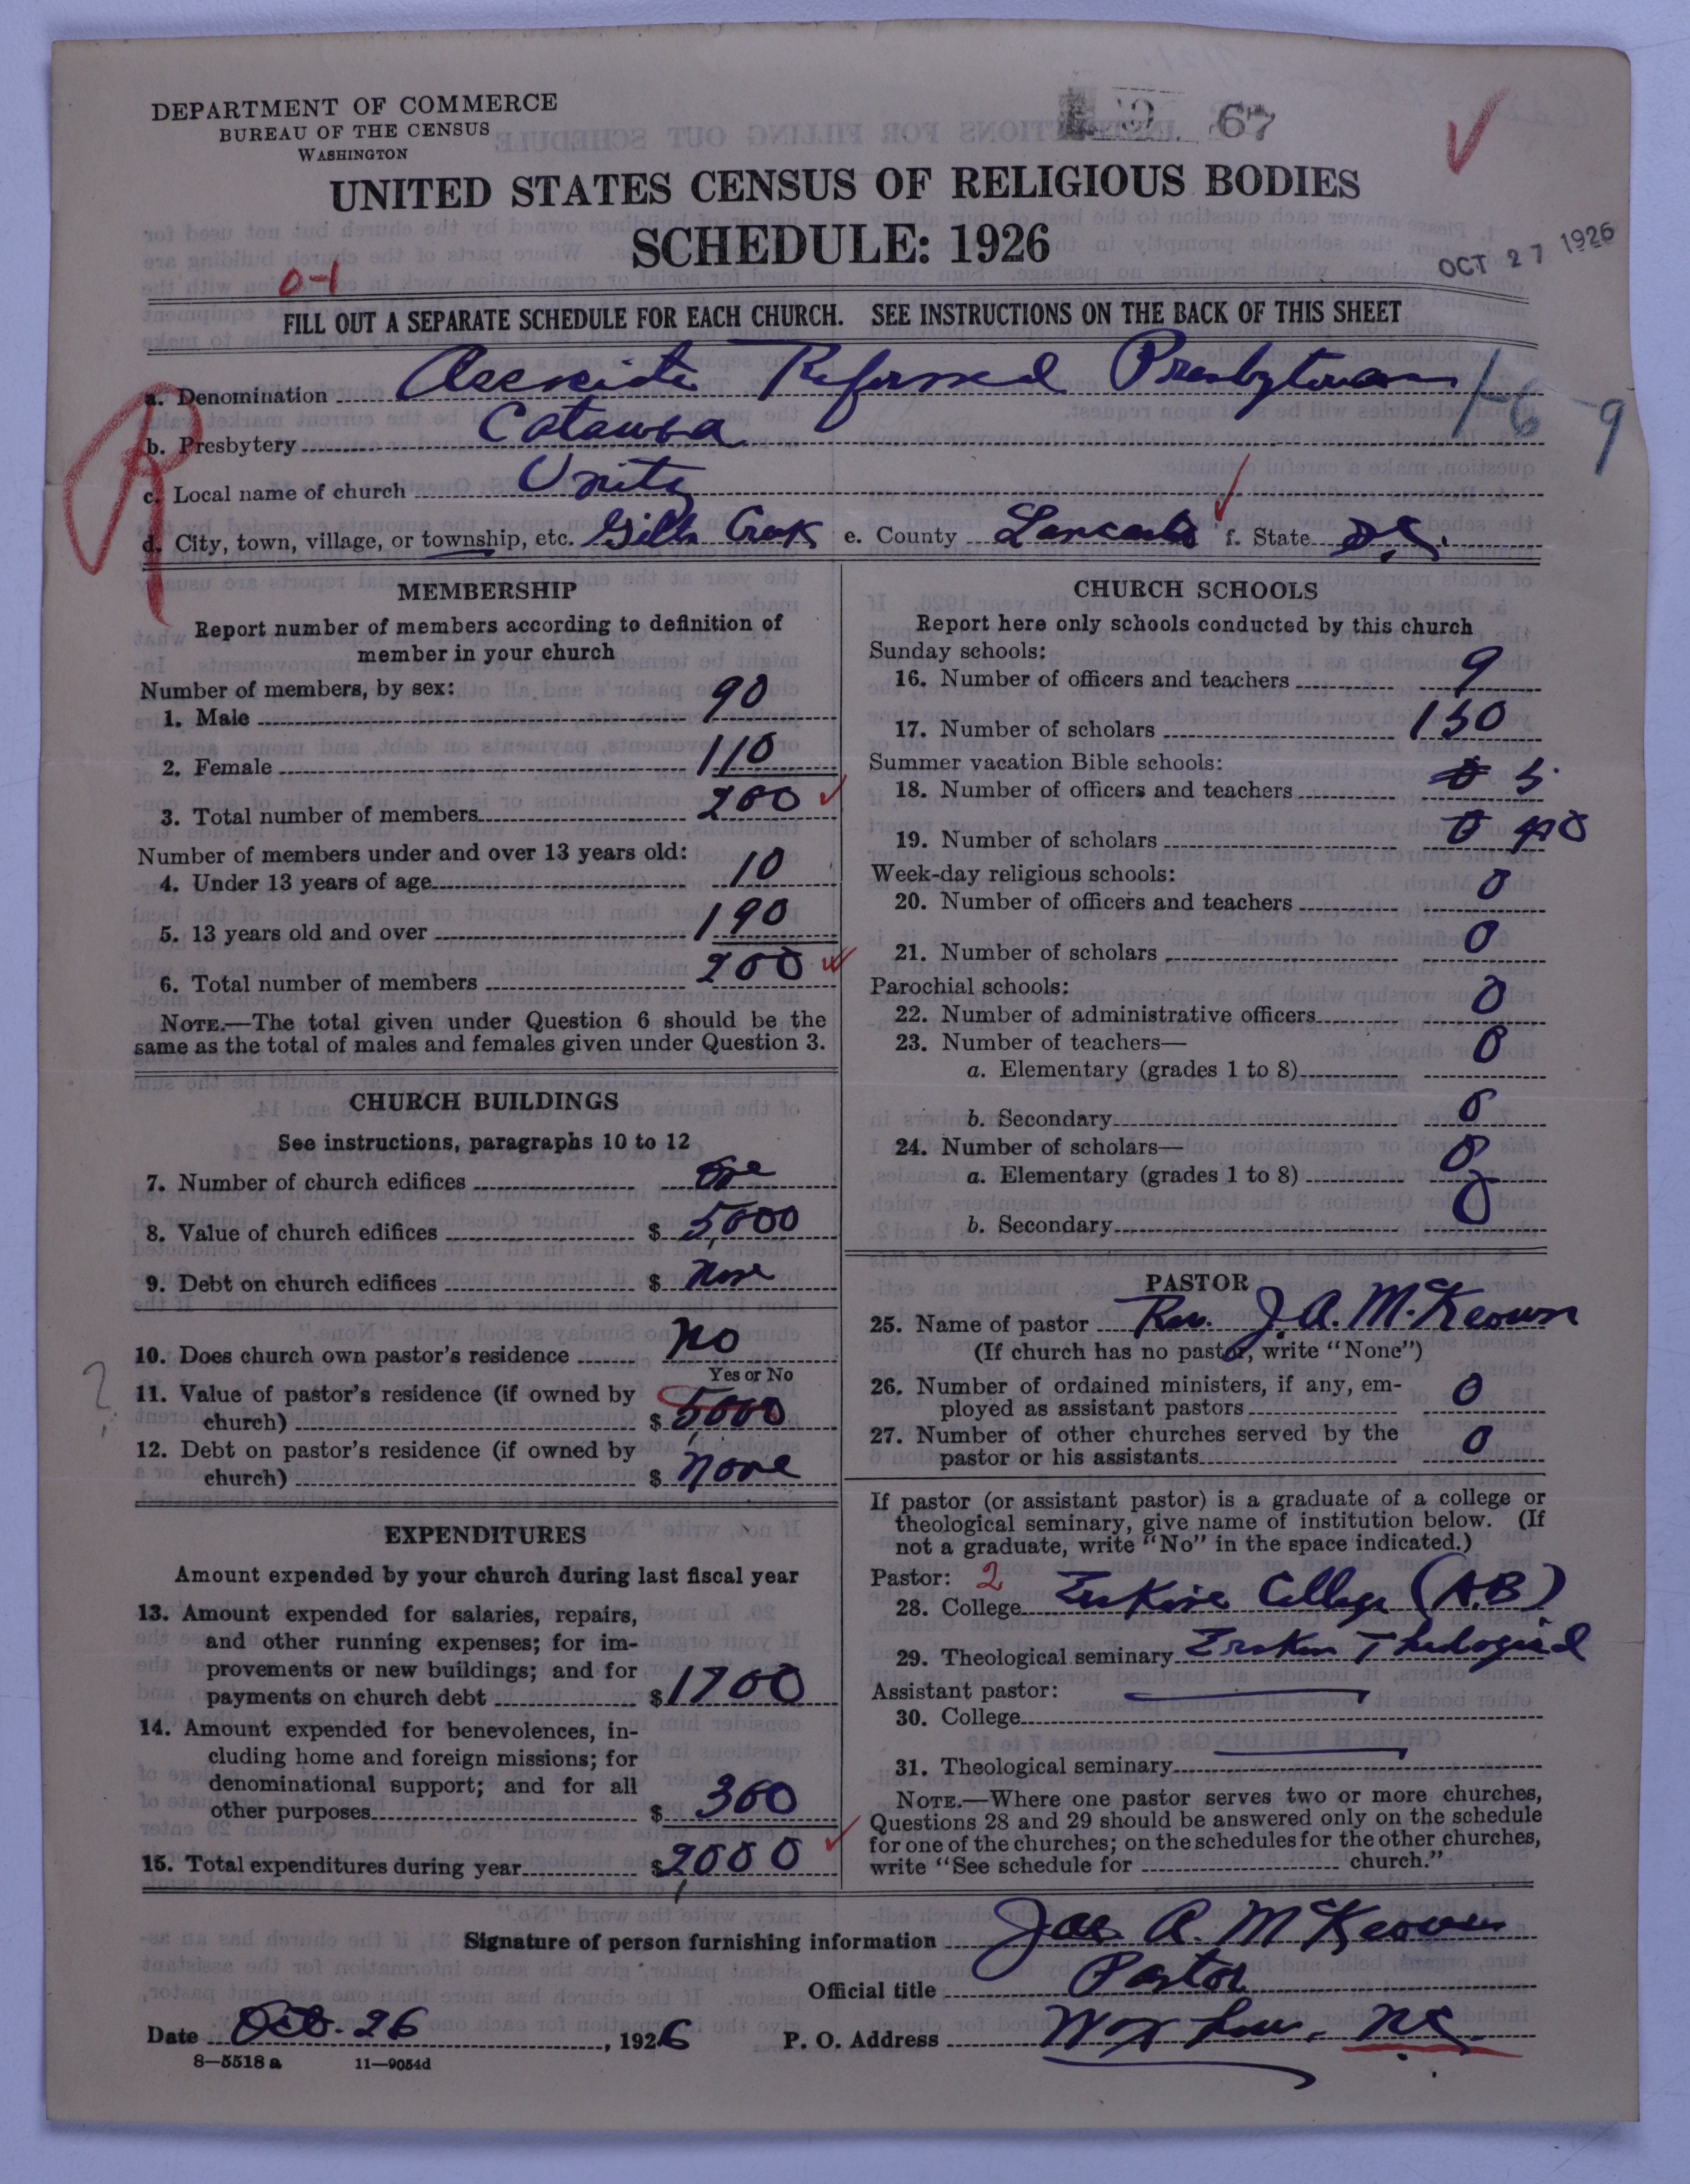 DEPARTMENT OF COMMERCE
BUREAU OF THE CENSUS
WASHINGTON
67
UNITED STATES CENSUS OF RELIGIOUS BODIES
SCHEDULE: 1926
OCT 27 1926
0-1
FILL OUT A SEPARATE SCHEDULE FOR EACH CHURCH. SEE INSTRUCTIONS ON THE BACK OF THIS SHEET
a. Denomination Associate Reformed Presbyterian
1-6-9
b. Presbytery Catawba
c. Local name of church Unity
d. City, town, village, or township, etc. Gills Creek e. County Lancaster f. State S.C.
R
MEMBERSHIP
Report number of members according to definition of
member in your church
Number of members, by sex:
1. Male 90
2. Female 110
3. Total number of members 200
Number of members under and over 13 years old:
4. Under 13 years of age 10
5. 13 years old and over 190
6. Total number of members 200
NOTE.—The total given under Question 6 should be the
same as the total of males and females given under Question 3.
CHURCH BUILDINGS
See instructions, paragraphs 10 to 12
7. Number of church edifices One
8. Value of church edifices $ 5,000
9. Debt on church edifices $ None
10. Does church own pastor's residence No
Yes or No
?
11. Value of pastor's residence (if owned by
church) $ 5,000
12. Debt on pastor's residence (if owned by
church) $ None
EXPENDITURES
Amount expended by your church during last fiscal year
13. Amount expended for salaries, repairs,
and other running expenses; for im-
provements or new buildings; and for
payments on church debt $ 1700
14. Amount expended for benevolences, in-
cluding home and foreign missions; for
denominational support; and for all
other purposes $ 300
15. Total expenditures during year $ 2,000
CHURCH SCHOOLS
Report here only schools conducted by this church
Sunday schools:
16. Number of officers and teachers 9
17. Number of scholars 150
Summer vacation Bible schools:
18. Number of officers and teachers 0 5
19. Number of scholars 0 40
Week-day religious schools:
20. Number of officers and teachers 0
21. Number of scholars 0
Parochial schools:
22. Number of administrative officers 0
23. Number of teachers—
a. Elementary (grades 1 to 8) 0
b. Secondary 0
24. Number of scholars—
a. Elementary (grades 1 to 8) 0
b. Secondary 0
PASTOR
25. Name of pastor Rev. J. A. McKeown
(If church has no pastor, write "None")
26. Number of ordained ministers, if any, em-
ployed as assistant pastors 0
27. Number of other churches served by the
pastor or his assistants 0
If pastor (or assistant pastor) is a graduate of a college or
theological seminary, give name of institution below. (If
not a graduate, write "No" in the space indicated.)
Pastor: 2
28. College Erskine College (A.B.)
29. Theological seminary Erskine Theological
Assistant pastor:
30. College
31. Theological seminary
NOTE.—Where one pastor serves two or more churches,
Questions 28 and 29 should be answered only on the schedule
for one of the churches; on the schedules for the other churches,
write "See schedule for church."
Signature of person furnishing information Jas A. McKeown
Official title Pastor
Date Oct. 26, 1926 P. O. Address Waxhaw, N.C.
8—5518 a 11—9054d